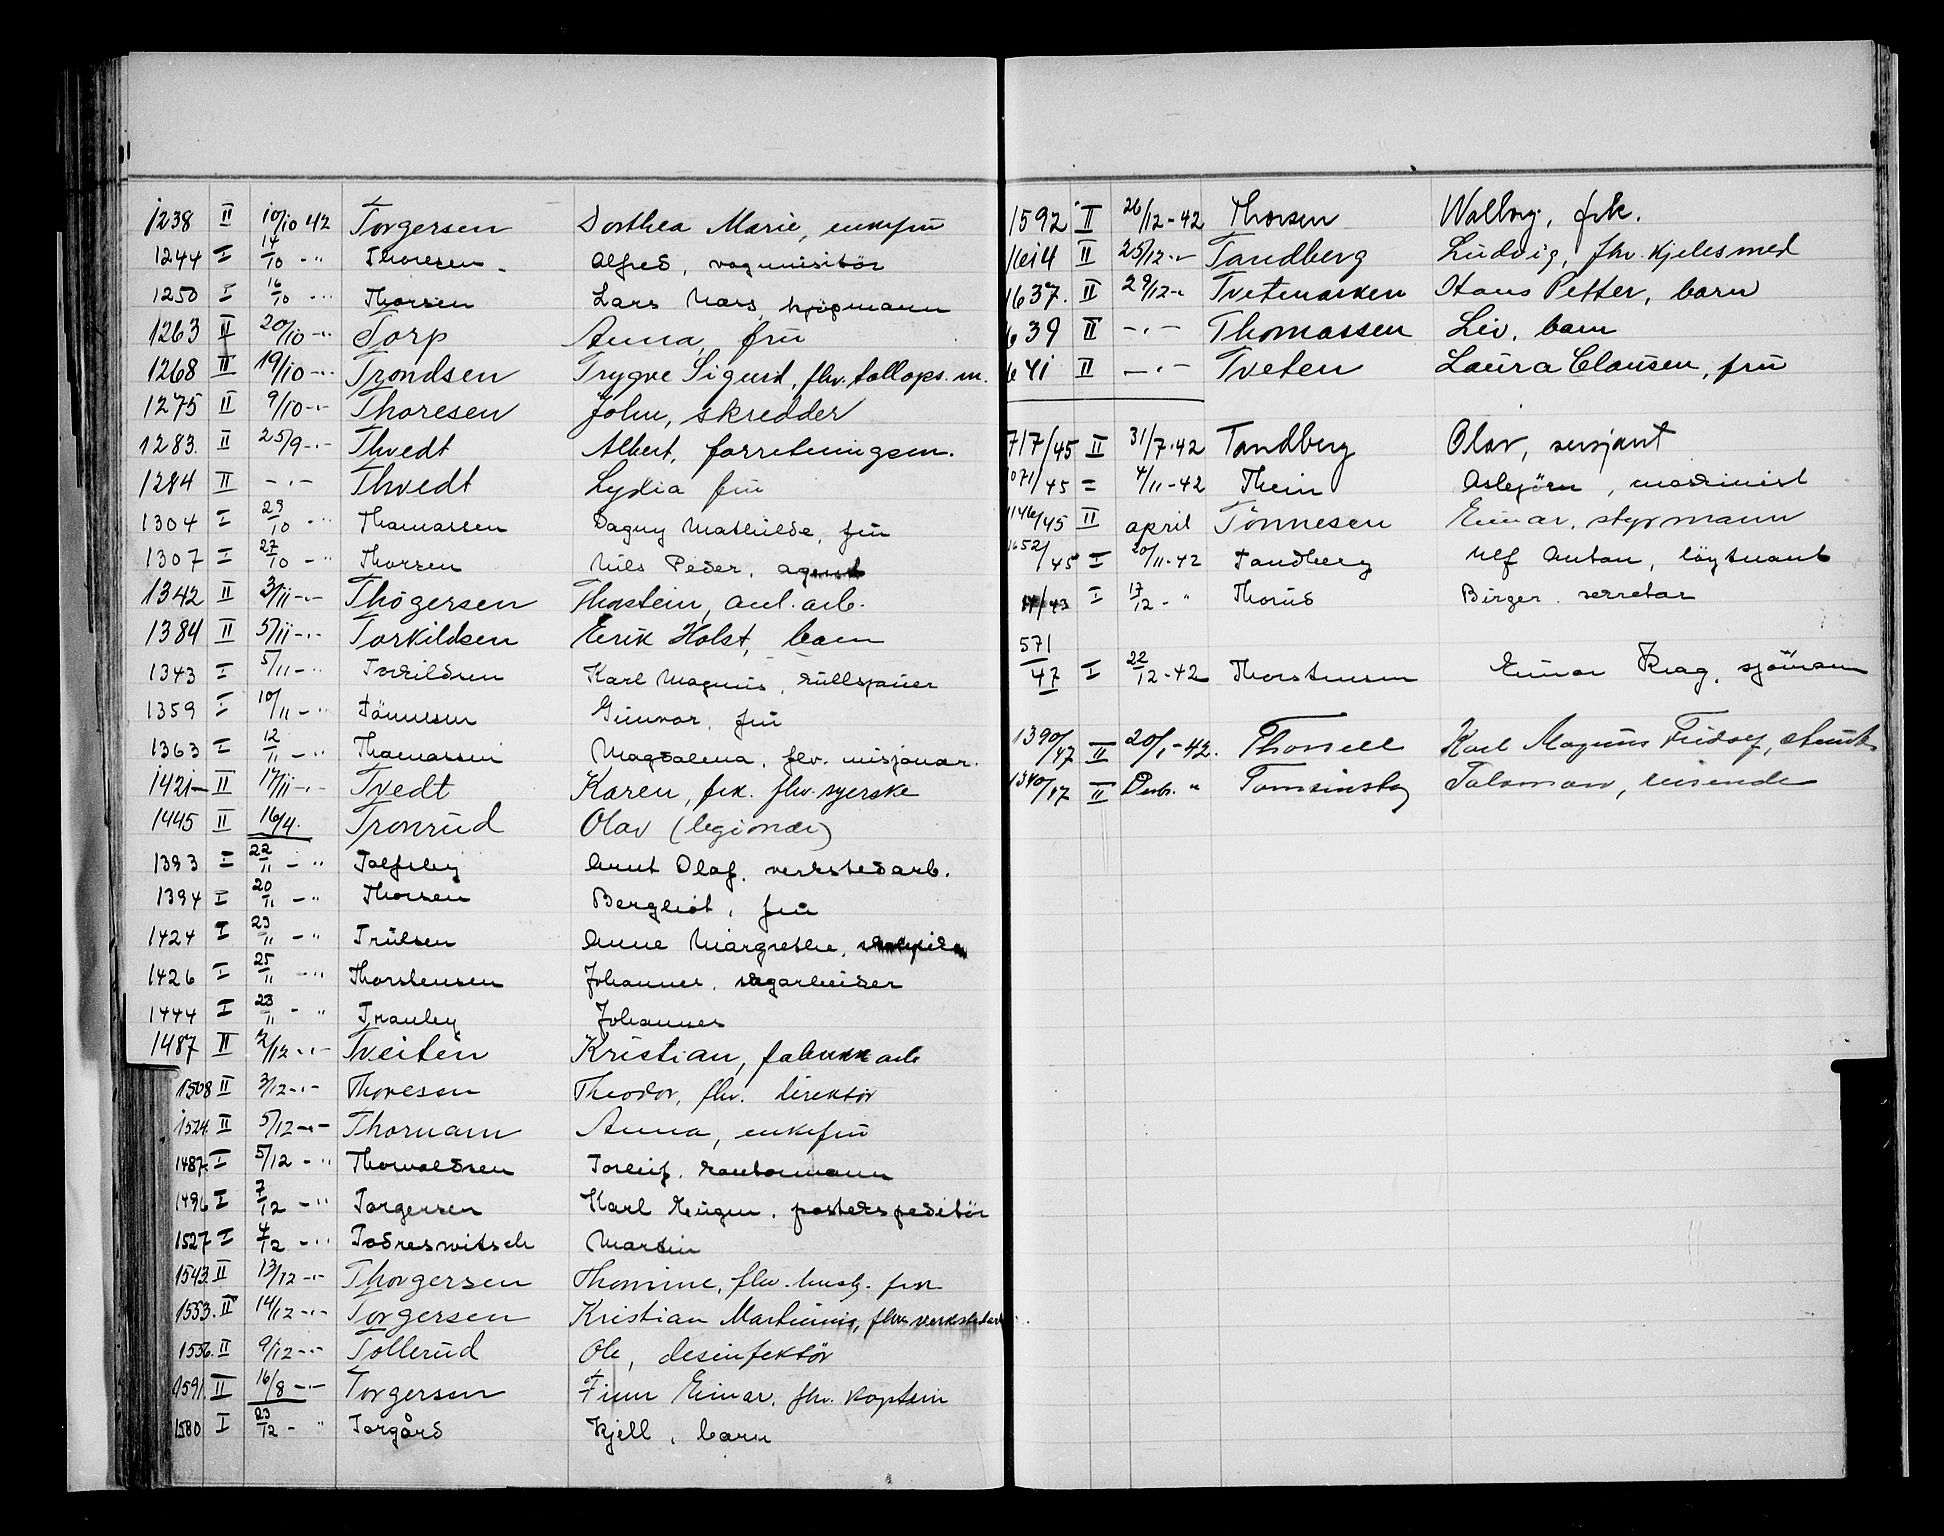 1238 II 10/10 42 Torgersen Dorthea Marie, enkefru
1244 I 14/10 -" Thoresen Alfred, vognvisitör
1250 I 16/10 -" Thorsen Lars Mars, kjøpmann
1263 II 20/10 -"- Torp Anna, fru
1268 II 19/10 -"- Trondsen Trygve Sigurd, fhv. tollops. m.
1275 II 9/10 -"- Thoresen John, skredder
1283. II 25/9 -"- Thvedt Albert, forretningsm.
1284 II -"- Thvedt Lydia fru
1304 I 29/10 -" Thomassen Dagny Mathilde, fru
1307 I 27/10 -" Thorsen Nils Peder, agent
1342 II 3/11 -"- Thögersen Thorstein, anl. arb.
1384 II 5/11 -"- Torkildsen Eerik Holst, barn
1343 I 5/11 -" Torkildsen Karl Magnus, rullskauer
1359 I 10/11 -" Tönnesen Gunvor, fru
1363 I 12/11 -" Thomassen Magdalena, fhv. misjonær.
1421 II 17/11 -"- Tvedt Karen, frk. fhv. syerske
1445 II 16/4. Tronrud Olav (legionær)
1393 I 22/11 -" Tolfsby Arnt Olaf, verkstedarb.
1394 I 20/11 -" Thorsen Bergliot, fru
1424 I 23/11 -" Trulsen Anne Margrethe,
1426 I 25/11 -" Thorstensen Johannes, sagarbeider
1444 I 23/11 -" Tranby Johannes
1487 II 2/12 -"- Tveiten Kristian, fabrikkarb
1508 II 3/12 -"- Thoresen Theodor, fhv. direktör
1524. II 5/12 -"- Thornam Anna, enkefru
1487. I 5/12 -" Thorvaldsen Torleif, kontormann
1496 I 7/12 -" Torgersen Karl Eugen, postekspeditör
1527 I 4/12 -" Todreswitsch Martin
1543. II 13/12 -"- Thorgersen Thomine, fhv. husb. frk
1553. II 14/12 -"- Torgersen Kristian Martinius, fhv. verkstedarb.
1556. II 9/12 -"- Tollerud Ole, desinfektör
1591. II 16/8 -"- Torgersen Finn Einar, fhv. kaptein
1580 I 23/12 -" Torgård Kjell, barn
1592 II 26/12-42 Thorsen Walborg, frk.
1614 II 25/12 -"- Tandberg Ludvig, fhv. kjelesmed
1637. II 29/12 -"- Tvetmarken Hans Petter, barn
639 II -"- Thomassen Liv, barn
641 II -"- Tveten Laura Clausen, fru
717/45 II 31/7-42 Tandberg Olav, sersjant
1071/45 = 4/11-42 Thein Asbjörn, maskinist
1146/45 II april Tönnesen Einar, styrmann
1652/45 I 20/11-42 Tandberg Ulf Anton, löytnant
/43 I 17/12 -" Thorud Birger, sekretær
571/47 I 22/12-42 Thorstensen Einar Krag, sjömann
1390/47 II 20/1-42. Thorsell Karl Magnus Fridolf,
1340/47 II Desb. " Tomsinsky Salomon, reisende